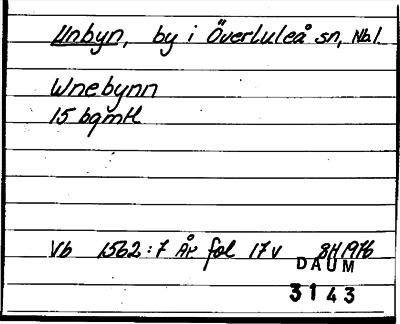 Unbyn, by i Överluleå sn, Nb.l.
Wnebynn
15 bgmtl
Vb 1562:7 ÅR fol 17v BH 1976
DAUM
3143